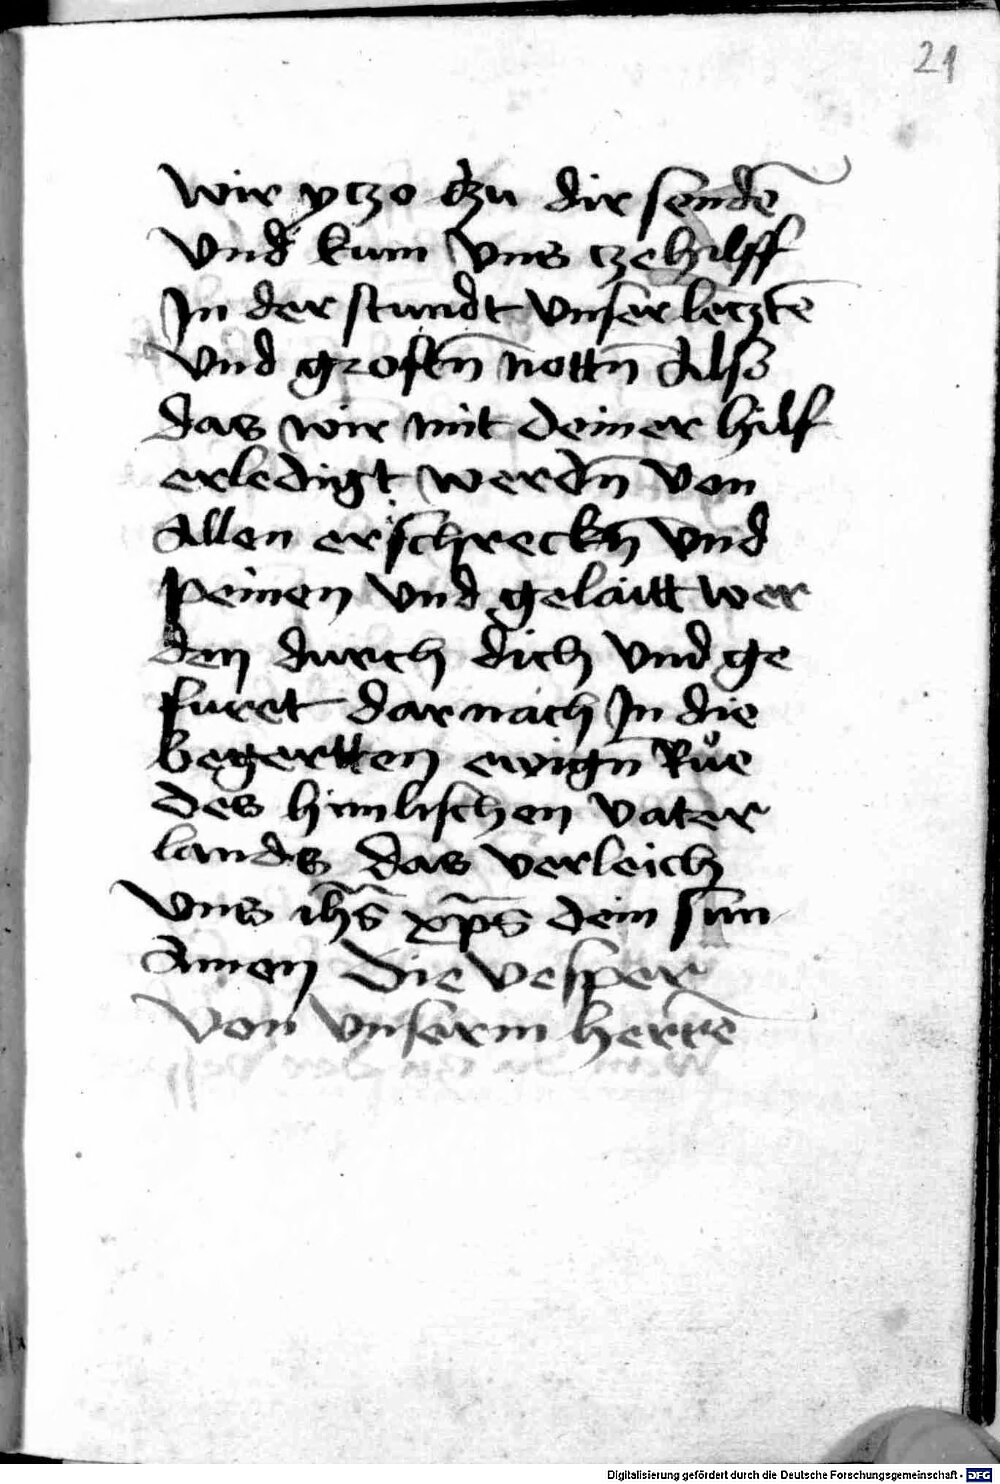 21
wir yczo czu dir sendē
vnd kum vns cze hilff
Jn der stundt vnser lecztē
vnd grostn̄ nottn̄ Also
das wir mit deiner hilf
erledigt werdn̄ von
Allen erschreckn̄ vnd
peinen vnd gelaitt wer
den durch dich vnd ge
furet dar nach Jn die
begertten ewign̄ Růe
des himlischen vater
lands das verleich
vns ihs̄ xp̄s dein sun
Amen Die vesper
von vnserm herrē
Digitalisierung gefördert durch die Deutsche Forschungsgemeinschaft - DFG